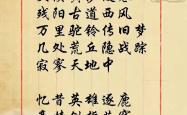 残阳古道西风
万里驼铃传旧梦
几处荒丘隐战踪
寂寥天地中
忆昔英雄逐鹿